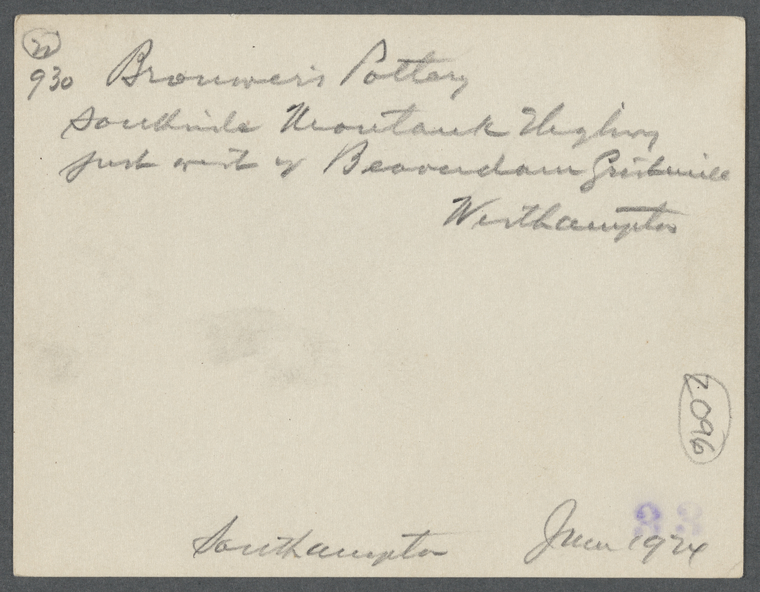 22
930 Brouwer's Pottery
southside Montauk Highway
just west of Beaverdam Gristmill
Westhampton
2096
33
Southampton June 1924